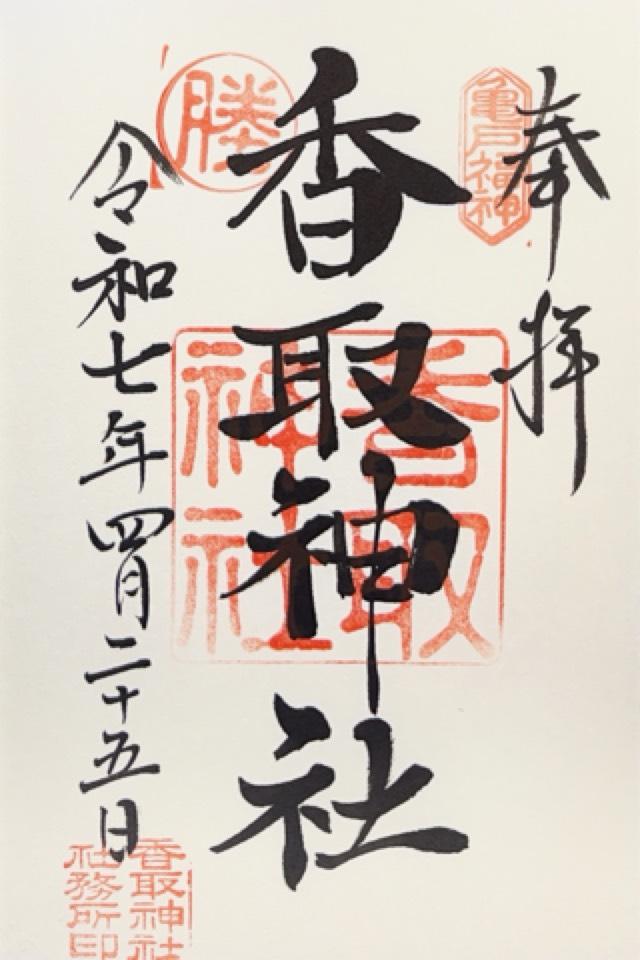 奉拝
亀戸福神
香取神社
勝
香取神社
令和七年四月二十五日
香取神社
社務所印